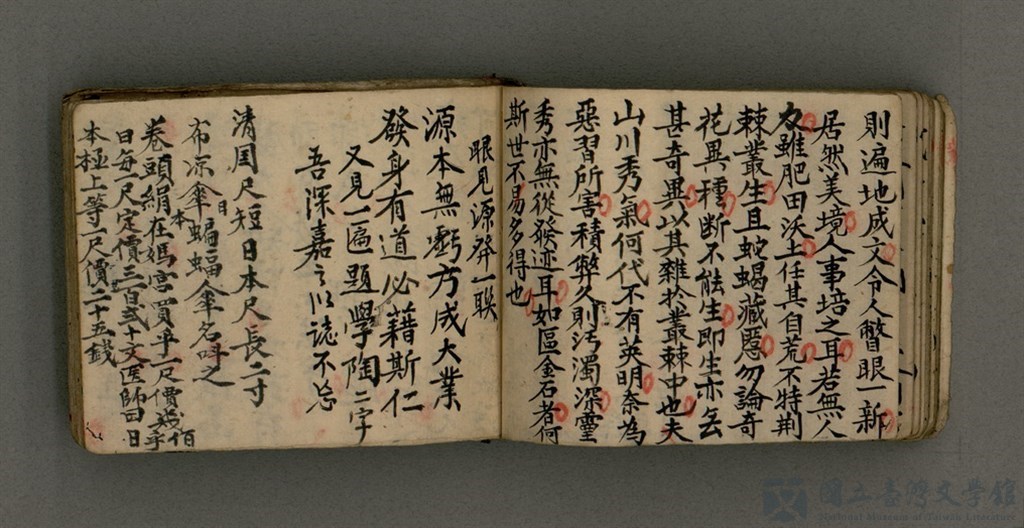 則遍地成文令人瞥眼一新
居然美境人事培之耳若無人
力雖肥田沃土任其自荒不特荆
棘叢生且蛇蝎藏慝勿論奇
花異種斷不能生即生亦無
甚奇異以其雜於叢棘中也夫
山川秀氣何代不有英明奈為
惡習所害積弊久則污濁深靈
秀亦無從發迹耳如區金石者何
斯世不易多得也
眼見源發一聯
源本無虧方成大業
發身有道必藉斯仁
又見一匾題學陶二字
吾深嘉之以誌不忘
清国尺短日本尺長二寸
布凉傘日本蝙蝠傘名呌之
卷頭絹在媽宮買乎一尺價幾佰乎
日每一尺定價三百弍十文医師曰日
本極上等一尺價二十五錢
國立臺灣文學館
National Museum of Taiwan Literature